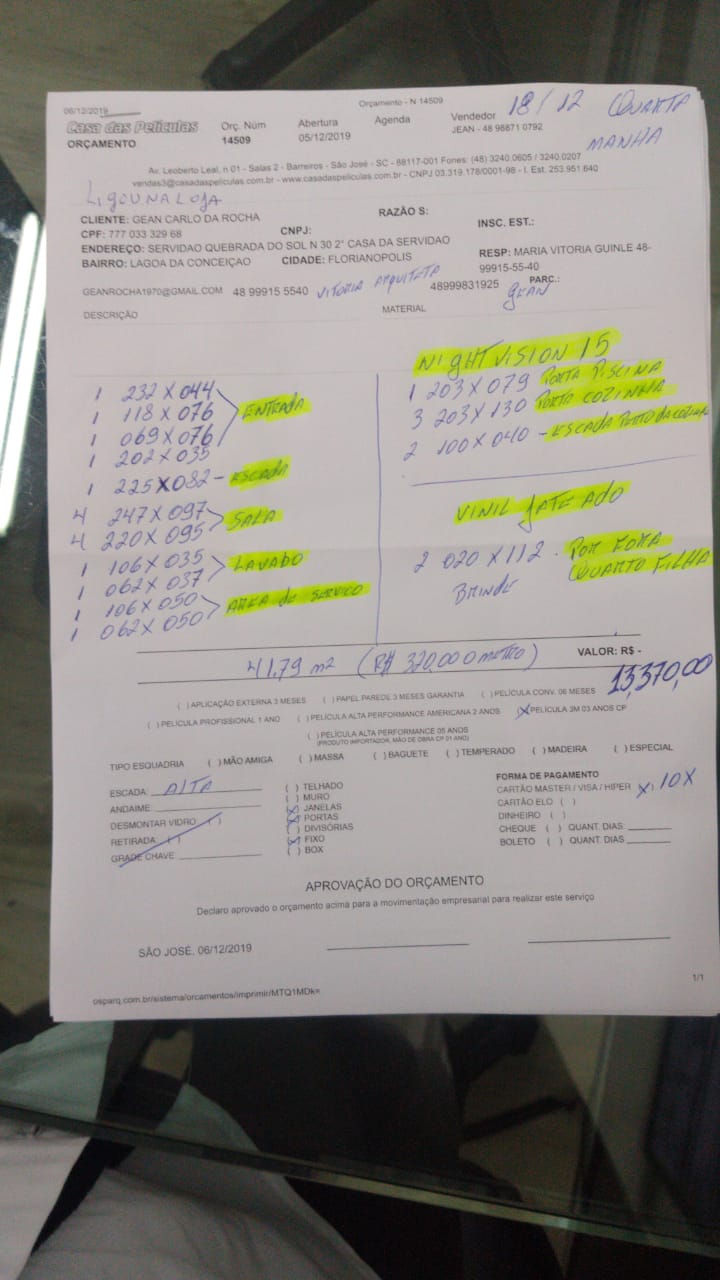 06/12/2019
Orçamento - N 14509
18/12 QUARTA
MANHA
Casa das Películas
ORÇAMENTO
Orç. Núm
14509
Abertura
05/12/2019
Agenda
Vendedor
JEAN - 48 98871 0792
Av. Leoberto Leal, n 01 - Salas 2 - Barreiros - São José - SC - 88117-001 Fones: (48) 3240.0605 / 3240.0207
vendas3@casadaspeliculas.com.br - www.casadaspeliculas.com.br - CNPJ 03.319.178/0001-98 - I. Est. 253.951.640
LIGOU NA LOJA
CLIENTE: GEAN CARLO DA ROCHA
RAZÃO S:
CPF: 777 033 329 68
CNPJ:
INSC. EST.:
ENDEREÇO: SERVIDAO QUEBRADA DO SOL N 30 2° CASA DA SERVIDAO
BAIRRO: LAGOA DA CONCEIÇAO
CIDADE: FLORIANOPOLIS
RESP: MARIA VITORIA GUINLE 48-
99915-55-40
GEANROCHA1970@GMAIL.COM 48 99915 5540 VITORIA ARQUITETA 48999831925
PARC.:
GEAN
DESCRIÇÃO
MATERIAL
1 232 X 044
1 118 X 076 ENTRADA
1 069 X 076
1 202 X 035
1 225 X 082 - ESCADA
4 247 X 097
4 220 X 095 SALA
1 106 X 035
1 062 X 037 LAVABO
1 106 X 050
1 062 X 050 AREA de SERVICO
NIGHT VISION 15
1 203 X 079 PORTA PISCINA
3 203 X 130 PORTA COZINHA
2 100 X 040 - ESCADA PERTO DA COZINHA
VINIL JATEADO
2 020 X 112 . POR FORA
QUARTO FILHA
BRINDE
41,79 m² (R$ 320,00 O METRO)
VALOR: R$ -
13,370,00
( ) APLICAÇÃO EXTERNA 3 MESES ( ) PAPEL PAREDE 3 MESES GARANTIA ( ) PELÍCULA CONV. 06 MESES
( ) PELÍCULA PROFISSIONAL 1 ANO ( ) PELÍCULA ALTA PERFORMANCE AMERICANA 2 ANOS (X) PELÍCULA 3M 03 ANOS CP
( ) PELÍCULA ALTA PERFORMANCE 05 ANOS
(PRODUTO IMPORTADOR, MÃO DE OBRA CP 01 ANO)
TIPO ESQUADRIA ( ) MÃO AMIGA ( ) MASSA ( ) BAGUETE ( ) TEMPERADO ( ) MADEIRA ( ) ESPECIAL
ESCADA: ALTA
ANDAIME:
DESMONTAR VIDRO: ( )
RETIRADA: ( )
GRADE CHAVE:
( ) TELHADO
( ) MURO
(X) JANELAS
(X) PORTAS
( ) DIVISÓRIAS
(X) FIXO
( ) BOX
FORMA DE PAGAMENTO
CARTÃO MASTER / VISA / HIPER (X) 10X
CARTÃO ELO ( )
DINHEIRO ( )
CHEQUE ( ) QUANT. DIAS:
BOLETO ( ) QUANT. DIAS
APROVAÇÃO DO ORÇAMENTO
Declaro aprovado o orçamento acima para a movimentação empresarial para realizar este serviço
SÃO JOSÉ, 06/12/2019
1/1
osparq.com.br/sistema/orcamentos/imprimir/MTQ1MDk=